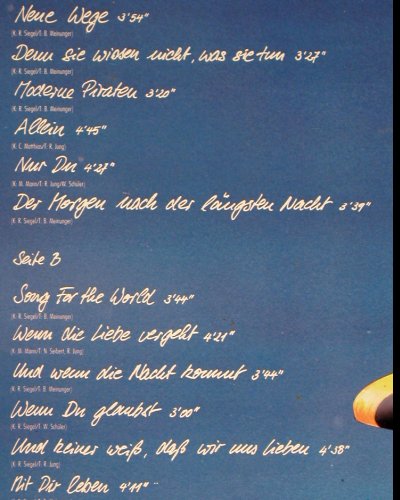 Neue Wege 3'54"
(K: R. Siegel/T: B. Meinunger)
Denn sie wissen nicht, was sie tun 3'27"
(K: R. Siegel/T: B. Meinunger)
Moderne Piraten 3'20"
(K: R. Siegel/T: B. Meinunger)
Allein 4'45"
(K: C. Matthies/T: R. Jung)
Nur Du 4'27"
(K: M. Mann/T: R. Jung/W. Schüler)
Der Morgen nach der längsten Nacht 3'39"
(K: R. Siegel/T: B. Meinunger)
Seite B
Song For the World 3'44"
(K: R. Siegel/T: B. Meinunger)
Wenn die Liebe vergeht 4'21"
(K: M. Mann/T: N. Seibert, R. Jung)
Und wenn die Nacht kommt 3'44"
(K: R. Siegel/T: B. Meinunger)
Wenn Du glaubst 3'00"
(K: R. Siegel/T: W. Schüler)
Und keiner weiß, daß wir uns lieben 4'38"
(K: R. Siegel/T: R. Jung)
Mit Dir leben 4'11"